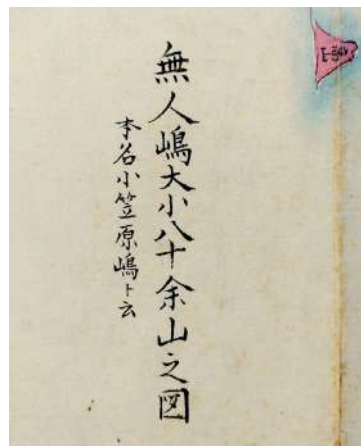 無人嶋大小八十余山之図
本名小笠原嶋ト云